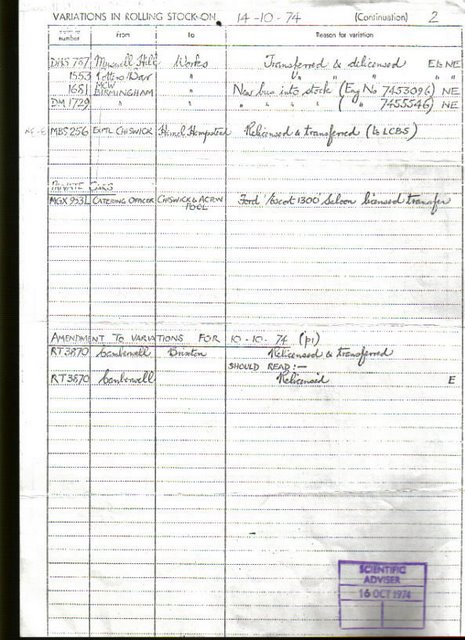 VARIATIONS IN ROLLING STOCK ON 14-10-74 (Continuation) 2
number From To Reason for variation
787 Muswell Hill Works Transferred & delicensed E to NE
1553 " " " " "
1681 MCW BIRMINGHAM " New bus into stock (Eng No 7453096) NE
DM 1729 " " " " " " ( " 7455546) NE
MBS 256 EXPTL CHISWICK Hemel Hempstead Relicensed & transferred (to LCBS)
PRIVATE CARS
MGX 953L CATERING OFFICER CHISWICK & ACTON POOL Ford 'Escort 1300' Saloon licensed transfer
AMENDMENT TO VARIATIONS FOR 10-10-74 (p1)
RT3870 Camberwell Brixton Relicensed & transferred
SHOULD READ:—
RT3870 Camberwell Relicensed E
SCIENTIFIC
ADVISER
16 OCT 1974